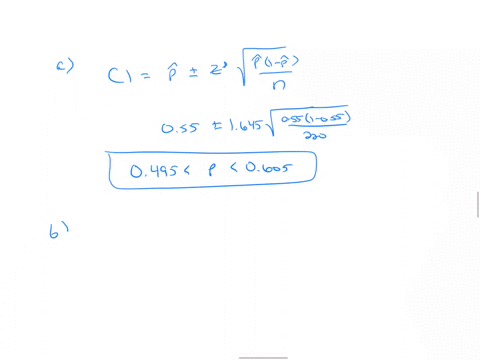 a) CI = p̂ ± z* √(p̂(1-p̂)/n)
0.55 ± 1.645 √(0.55(1-0.55)/220)
0.495 < p < 0.605
b)